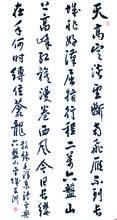 天高雲淡望斷南飛雁不到長
城非好漢屈指行程二萬六盤山
上高峰紅旗漫卷西風今日長纓
在手何時縛住蒼龍
六盤山